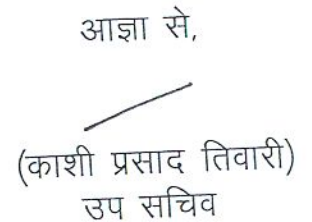 आज्ञा से,
(काशी प्रसाद तिवारी)
उप सचिव